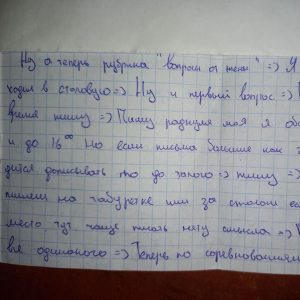 Ну а теперь рубрика "вопросы от жены" => Я
ходил в столовую => Ну и первый вопрос =>
время пишу => Пишу родная моя я
и до 16°° Но если письма больше как
дится дописывать то до => пишу =>
пишем на табуретке или за столом ес
место, тут чаще писать нету смысла =>
все одинаково => Теперь по соревнованиям